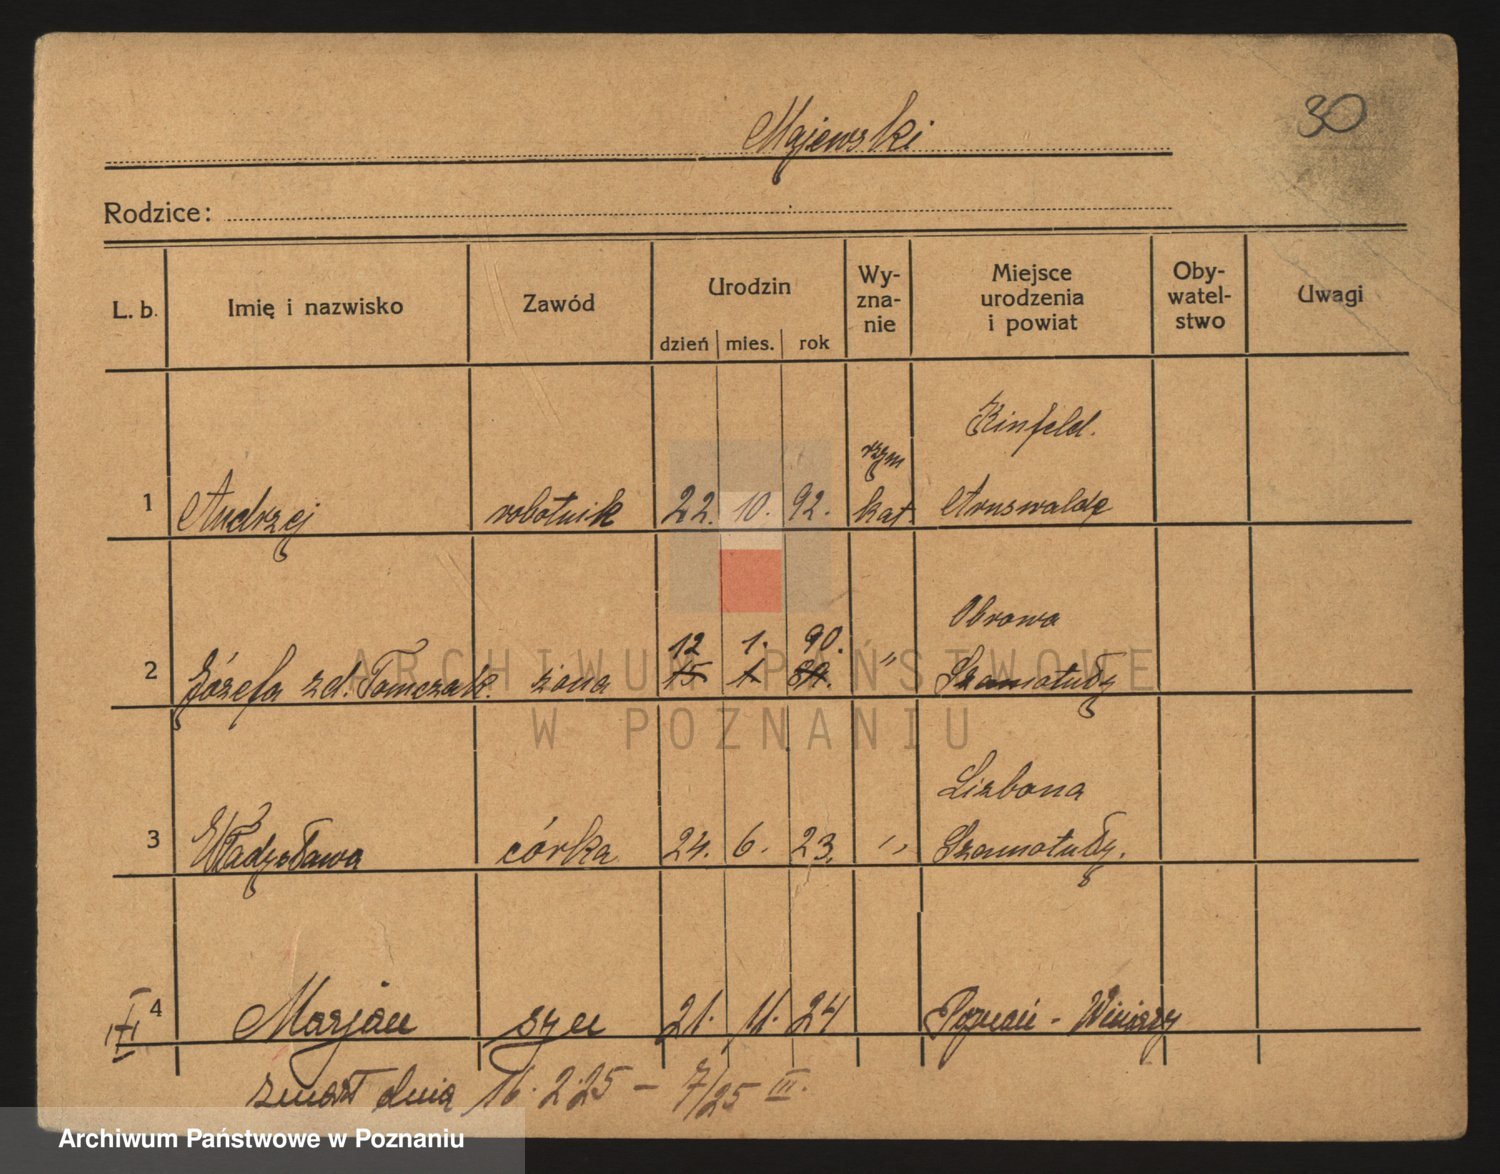 30
Majewski
Rodzice:
L. b. Imię i nazwisko Zawód Urodzin dzień mies. rok Wy-zna-nie Miejsce urodzenia i powiat Oby-watel-stwo Uwagi
Kinfeld.
rzym
1 Andrzej robotnik 22. 10. 92. kat. Arnswalde
Obrowa
12 1. 90.
2 Józefa zd. Tomczak. żona 15 1 89. " Szamotuły
Lizbona
3 Władysława córka 24. 6. 23. " Szamotuły.
4 Marjan syn 21. 11. 24 Poznań - Winiary
III
zmarł dnia 16. 2. 25 - 7/25 III.
ARCHIWUM PAŃSTWOWE
W POZNANIU
Archiwum Państwowe w Poznaniu